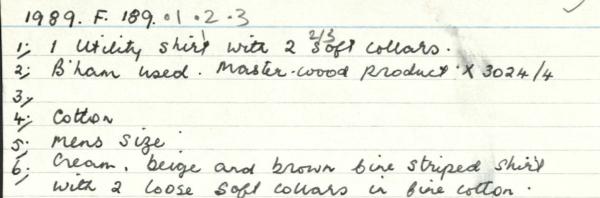 1989. F. 189. .1 .2 .3
1; 1 Utility shirt with 2 2/3 soft collars.
2; B'ham used. Master-wood product X 3024/4
3;
4; Cotton
5; Mens size
6; Cream, beige and brown fine striped shirt
with 2 loose soft collars in fine cotton.